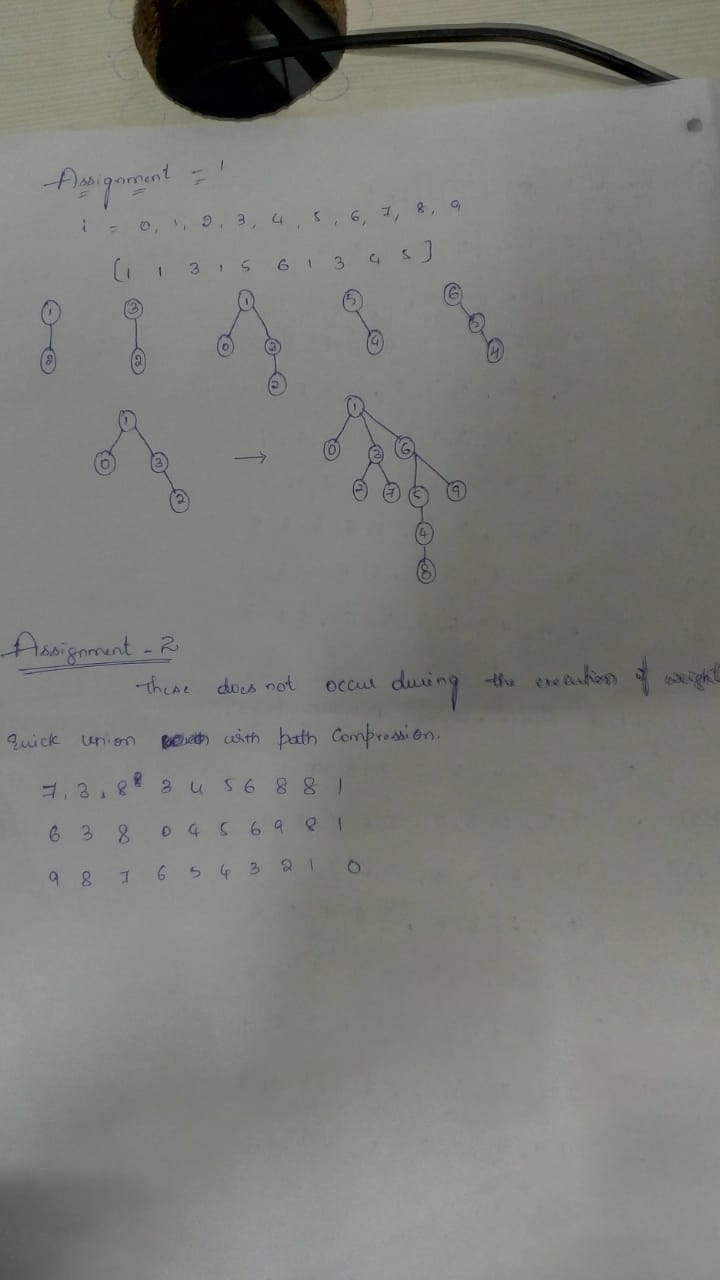 Assignment = 1
i = 0, 1, 2, 3, 4, 5, 6, 7, 8, 9
[1 1 3 1 5 6 1 3 4 5]
1 3 1 5 6
2 2 0 3 4 5
2 4
1 → 1
0 3 0 3 6
2 2 7 5 9
4
8
Assignment - 2
These does not occur during the execution of
quick union with path compression.
7, 3, 8 3 4 5 6 8 8 1
6 3 8 0 4 5 6 9 8 1
9 8 7 6 5 4 3 2 1 0